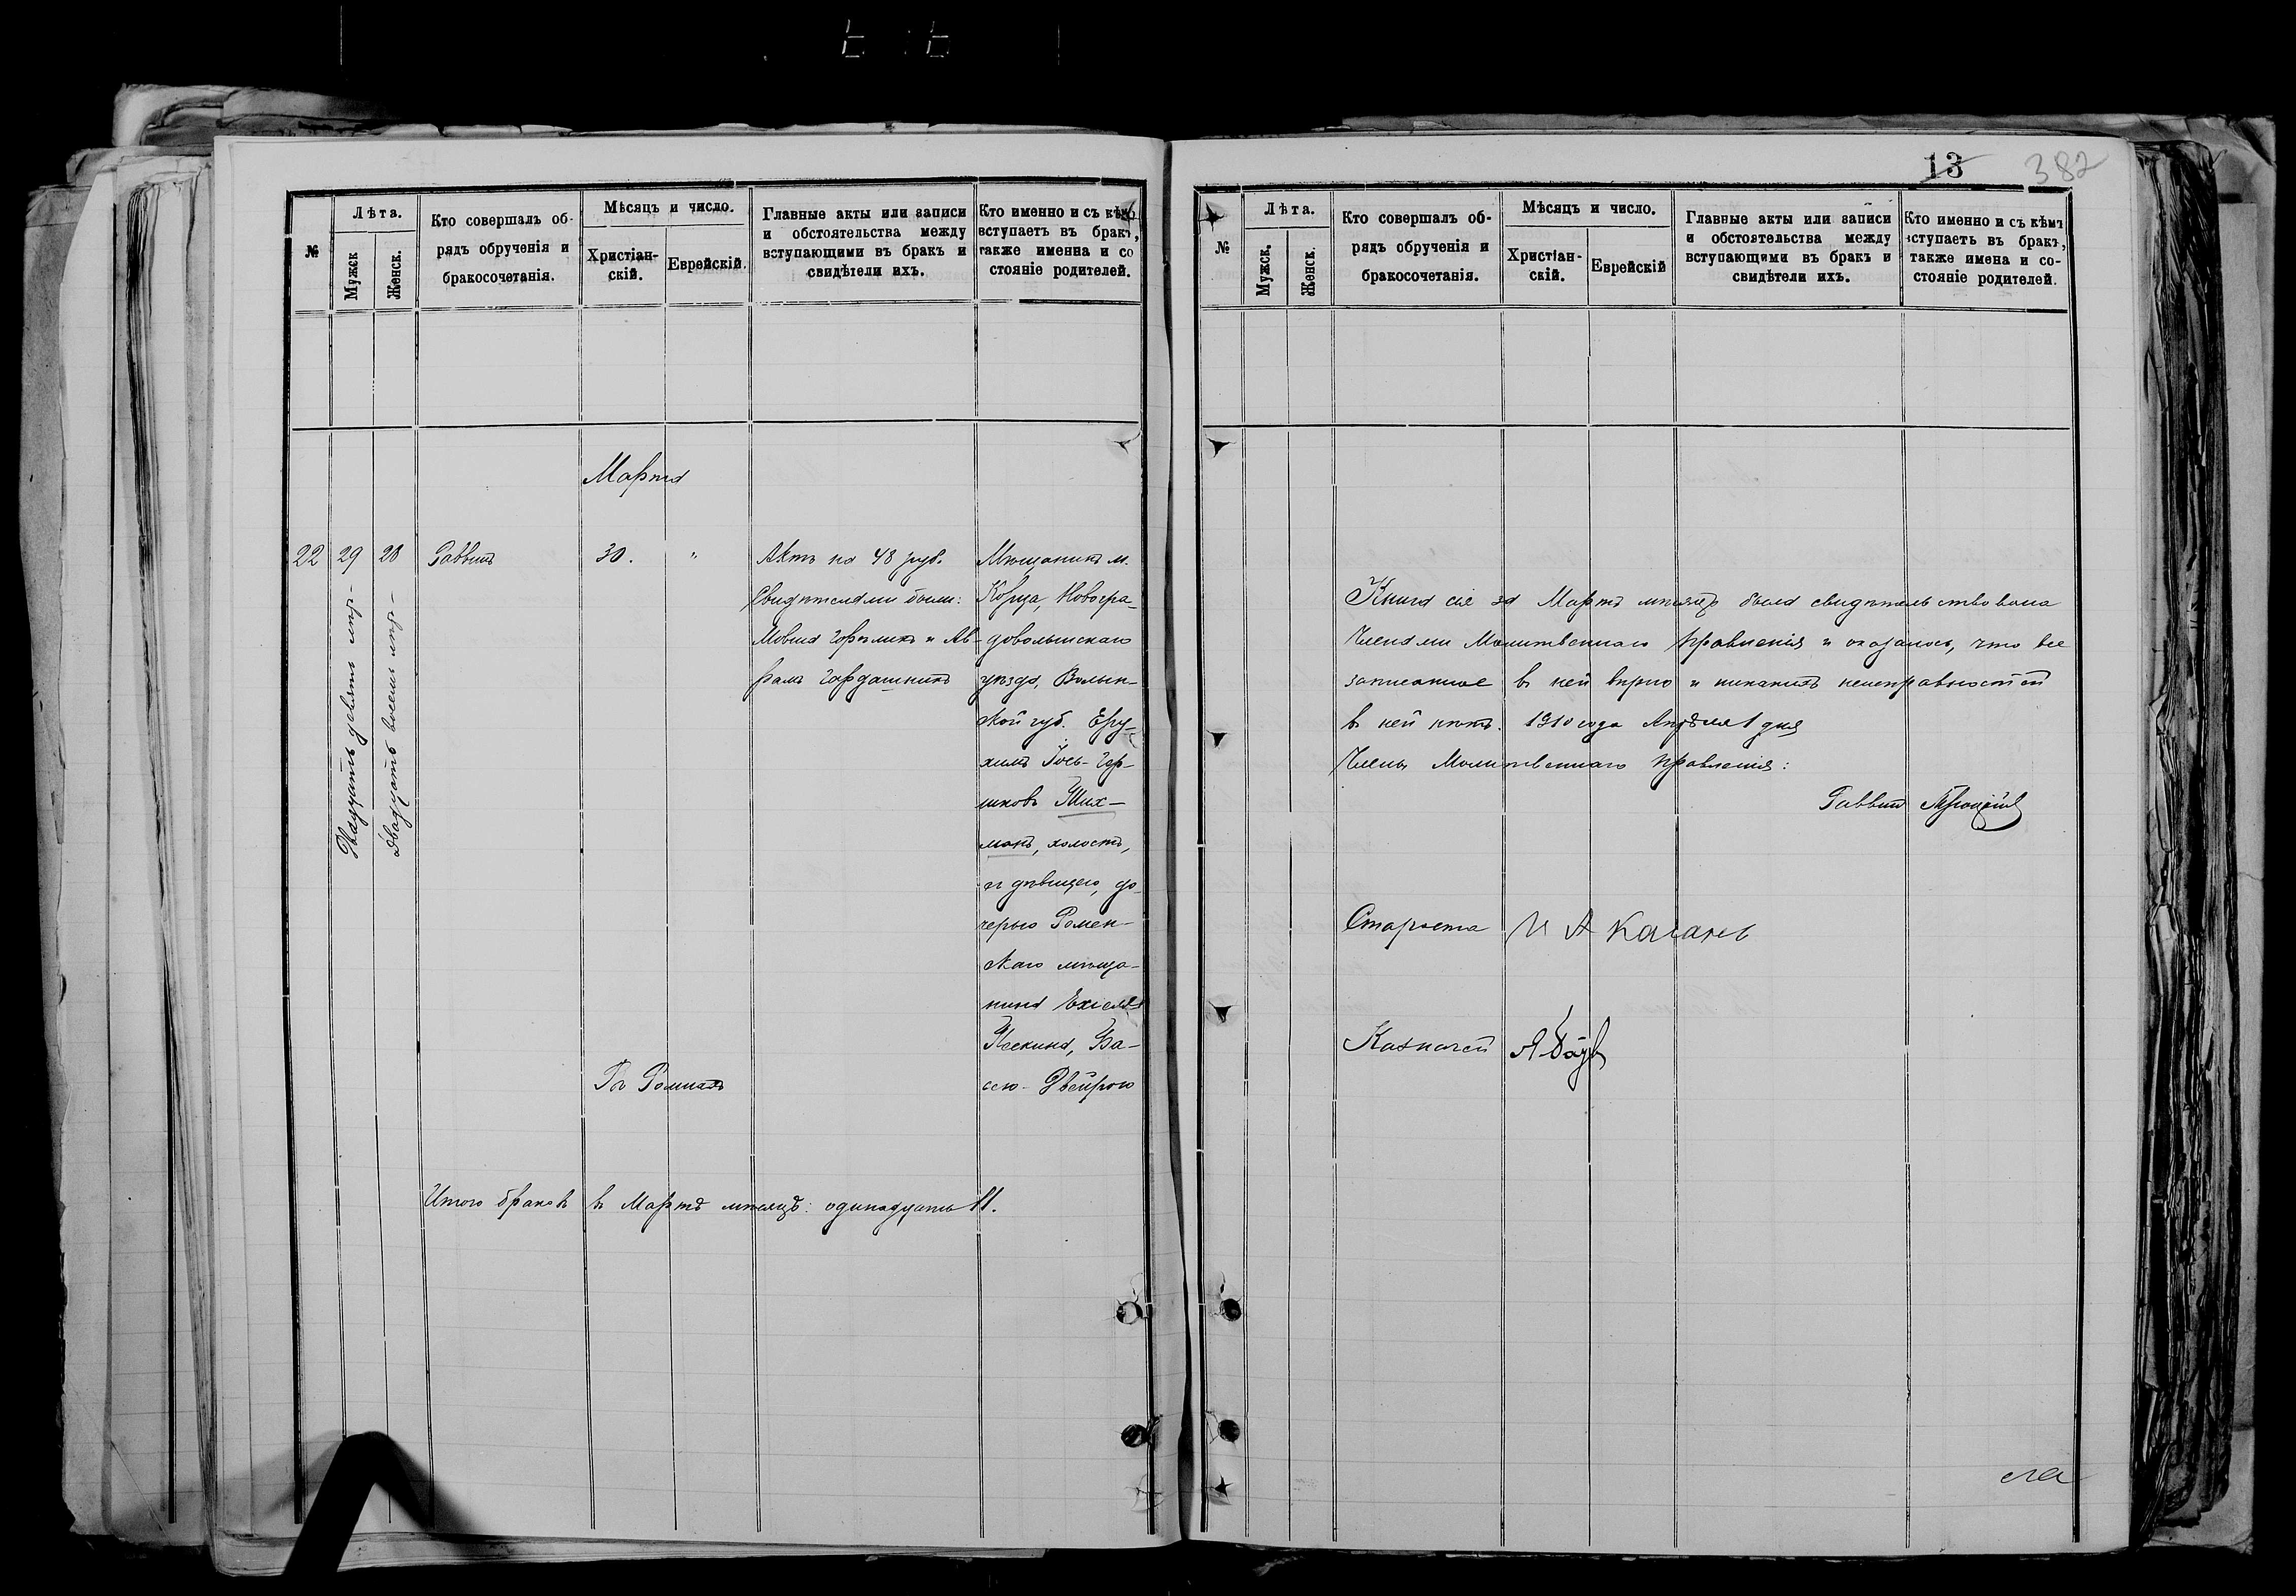 №
Лѣта.
Мужск
Женск.
Кто совершалъ об-
рядъ обрученія и
бракосочетанія.
Мѣсяцъ и число.
Христіан-
скій.
Еврейскій.
Главные акты или записи
и обстоятельства между
вступающими въ бракъ и
свидѣтели ихъ.
Кто именно и съ кѣмъ
вступаетъ въ бракъ,
также имена и со
стояніе родителей.
Марта
22 29 28 Раввинъ 30. "
Двадцать девять лѣт-
Двадцать восемь лѣт-
Актъ на 48 руб.
Свидѣтелями были:
Мовша Горѣликъ и Ав-
рамъ Гордашникъ
Мѣщанинъ м.
Корца, Новогра-
доволынскаго
уѣзда, Волын-
ской губ. Еру-
химъ Іось-Гер-
шковъ Ших-
манъ, холостъ,
съ дѣвицею, до-
черью Ромен-
скаго мѣща-
нина Ехіеля
Пескина, Ба-
сею-Двейрою
Въ Ромнахъ
Итого браковъ въ Мартѣ мѣсяцѣ: одинадцать 11.
13 382
№
Лѣта.
Мужск.
Женск.
Кто совершалъ об-
рядъ обрученія и
бракосочетанія.
Мѣсяцъ и число.
Христіан-
скій.
Еврейскій
Главные акты или записи
и обстоятельства между
вступающими въ бракъ и
свидѣтели ихъ.
Кто именно и съ кѣмъ
вступаетъ въ бракъ,
также имена и со-
стояніе родителей.
Книга сія за Мартъ мѣсяцъ была свидѣтельствована
Членами Молитвеннаго Правленія и оказалось, что все
записанное въ ней вѣрно и никакихъ неисправностей
въ ней нѣтъ. 1910 года Апрѣля 1 дня
Члены Молитвеннаго Правленія:
Раввинъ
Староста И А Каганъ
Казначей